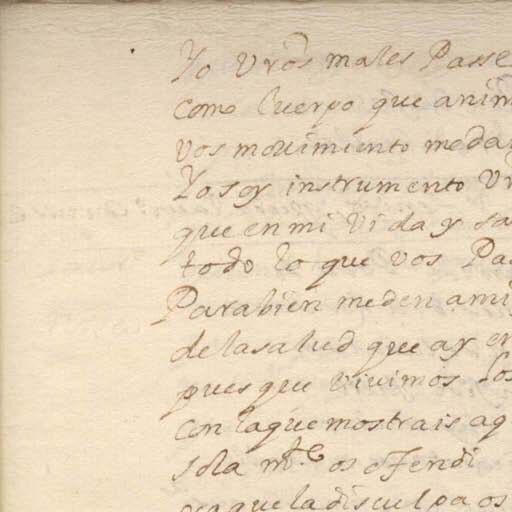 Yo vr̃os males Passe
como Cuerpo que anim
vos mouimiento meda
Yo soy instrumento vr
que en mi vida y sa
todo lo que vos Pa
Parabien meden ami
delasalud que ay en
pues que viuimos los
con laque mostrais aq
sola mte os ofendi
queladisculpa os